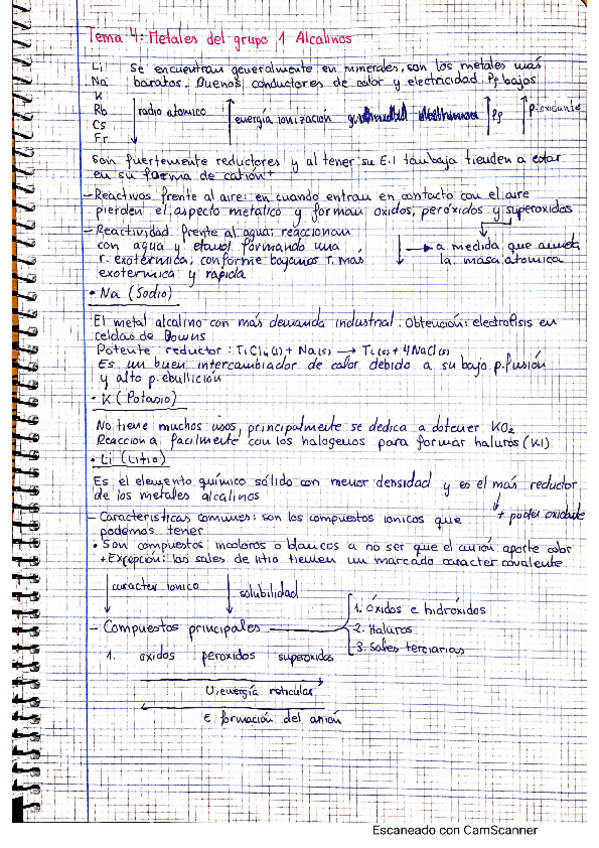 Tema 4: Metales del grupo 1 Alcalinos
Li Se encuentran generalmente en minerales, son los metales más
Na baratos. Buenos conductores de calor y electricidad. Pf bajos
K
Rb radio atomico energía ionización Pf p.oxidante
Cs
Fr
Son fuertemente reductores y al tener su E.I tan baja tienden a estar
en su forma de catión +
- Reactivos frente al aire: en cuando entran en contacto con el aire
pierden el aspecto metalico y forman oxidos, peróxidos y superoxidos
- Reactividad frente al agua: reaccionan
con agua y etanol formando una
a medida que aumenta
la masa atomica
r. exotérmica, conforme bajamos r. mas
exotermica y rapida
• Na (Sodio)
El metal alcalino con más demanda industrial. Obtención: electrolisis en
celdas de Downs
Potente reductor: TiCl4(l) + Na(s) → Ti(s) + 4NaCl(s)
Es un buen intercambiador de calor debido a su bajo p.fusión
y alto p.ebullición
• K (Potasio)
No tiene muchos usos, principalmente se dedica a obtener KO2
Reacciona facilmente con los halogenos para formar haluros (KI)
• Li (Litio)
Es el elemento químico sólido con menor densidad y es el más reductor
de los metales alcalinos
+ poder oxidante
- Caracteristicas comunes: son los compuestos ionicos que
podemos tener
• Son compuestos incoloros o blancos a no ser que el anión aporte color
+ Excepción: las sales de litio tienen un marcado caracter covalente
caracter ionico solubilidad
- Compuestos principales
1. óxidos e hidróxidos
2. Haluros
3. Sales terciarias
1. oxidos peroxidos superoxidos
U, energía reticular
E formación del anión
Escaneado con CamScanner